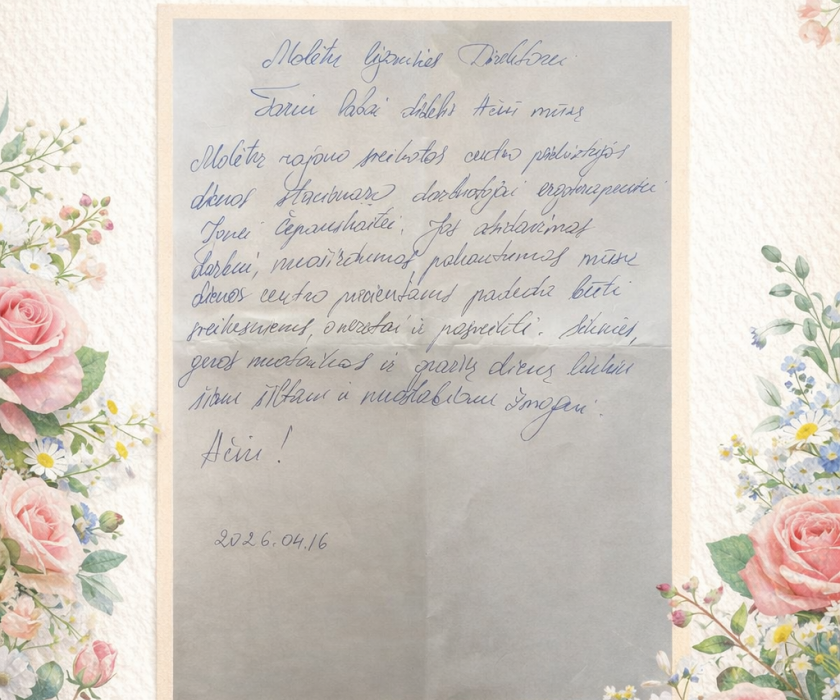 Molėtų ligoninės Direktorei
Tariu labai didelį Ačiū mūsų
Molėtų rajono sveikatos centro
dienos stacionaro darbuotojai ergoterapeutei
Jonei Čepanskaitei. Jos atidavimas
darbui, nuoširdumas, pakantumas mūsų
dienos centro pacientams padeda būti
sveikesniems, orentai ir pasveikti. Sėkmės,
geros nuotaikos ir gražių dienų linkiu
šiam šiltam ir nuostabiam žmogui.
Ačiū!
2026.04.16